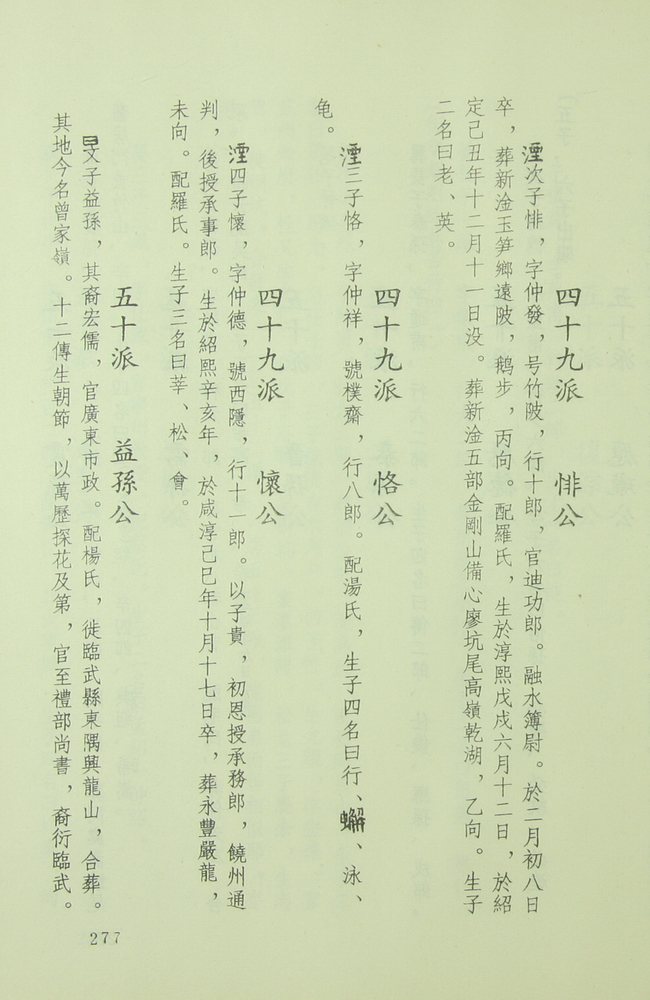 四十九派　　悱公
湮次子悱，字仲發，号竹陂，行十郎，官迪功郎。融水簿尉。於二月初八日
卒，葬新淦玉笋鄉遠陂，鵝步，丙向。配羅氏，生於淳熙戊戌六月十二日，於紹
定己丑年十二月十一日没。葬新淦五部金剛山備心廖坑尾高嶺乾湖，乙向。生子
二名曰老、英。
四十九派　　恪公
湮三子恪，字仲祥，號樸齋，行八郎。配湯氏，生子四名曰行、蠏、泳、
龟。
四十九派　　懷公
湮四子懷，字仲德，號西隱，行十一郎。以子貴，初恩授承務郎，饒州通
判，後授承事郎。生於紹熙辛亥年，於咸淳己巳年十月十七日卒，葬永豐嚴龍，
未向。配羅氏。生子三名曰莘、松、會。
五十派　　益孫公
文子益孫，其裔宏儒，官廣東市政。配楊氏，徙臨武縣東隅興龍山，合葬。
其地今名曾家嶺。十二傳生朝節，以萬歷探花及第，官至禮部尚書，裔衍臨武。
277